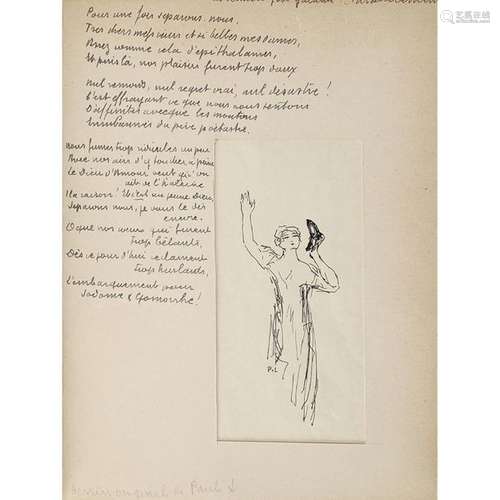 Pour une fois separons nous,
Tres chers messieurs et si belles mesdames,
Assez comme cela d'epithalames,
Et puis là, nos plaisirs furent trop doux
Nul remords, nul regret vrai, nul desastre !
C'est effrayant ce que nous nous sentons
D'affinites avecque les moutons
Enrubannés du pire poétastre.
Nous fumes trop ridicules un peu
Avec nos airs d'y toucher à peine
Le Dieu d'Amour veut qu'on
ait de l'haleine
Il a raison ! Et c'est un jeune Dieu,
Separons nous, je vous le dis
encore.
O que nos cœurs qui furent
trop bêlants,
Dès ce jour d'hui reclament
trop hurlants,
L'embarquement pour
Sodome & Gomorrhe !
P-L
Dessin original de Paul